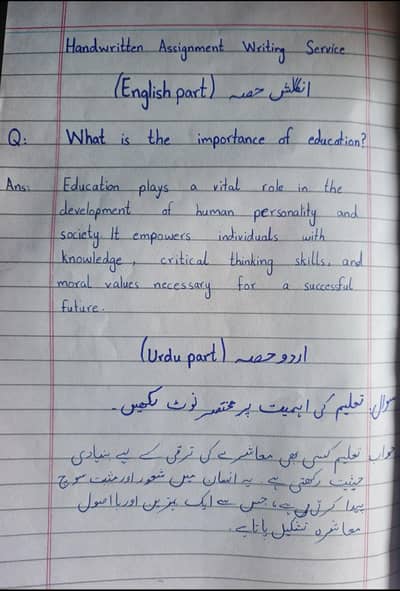 Handwritten Assignment Writing Service
(English part) انگلش حصہ
Q: What is the importance of education?
Ans: Education plays a vital role in the
development of human personality and
society. It empowers individuals with
knowledge, critical thinking skills, and
moral values necessary for a successful
future.
(Urdu part) اردو حصہ
سوال: تعلیم کی اہمیت پر مختصر نوٹ لکھیں۔
جواب تعلیم کسی بھی معاشرے کی ترقی کے لیے بنیادی
حیثیت رکھتی ہے۔ یہ انسان میں شعور اور مثبت سوچ
پیدا کرتی ہے، جس سے ایک بہترین اور بااصول
معاشرہ تشکیل پاتا ہے۔